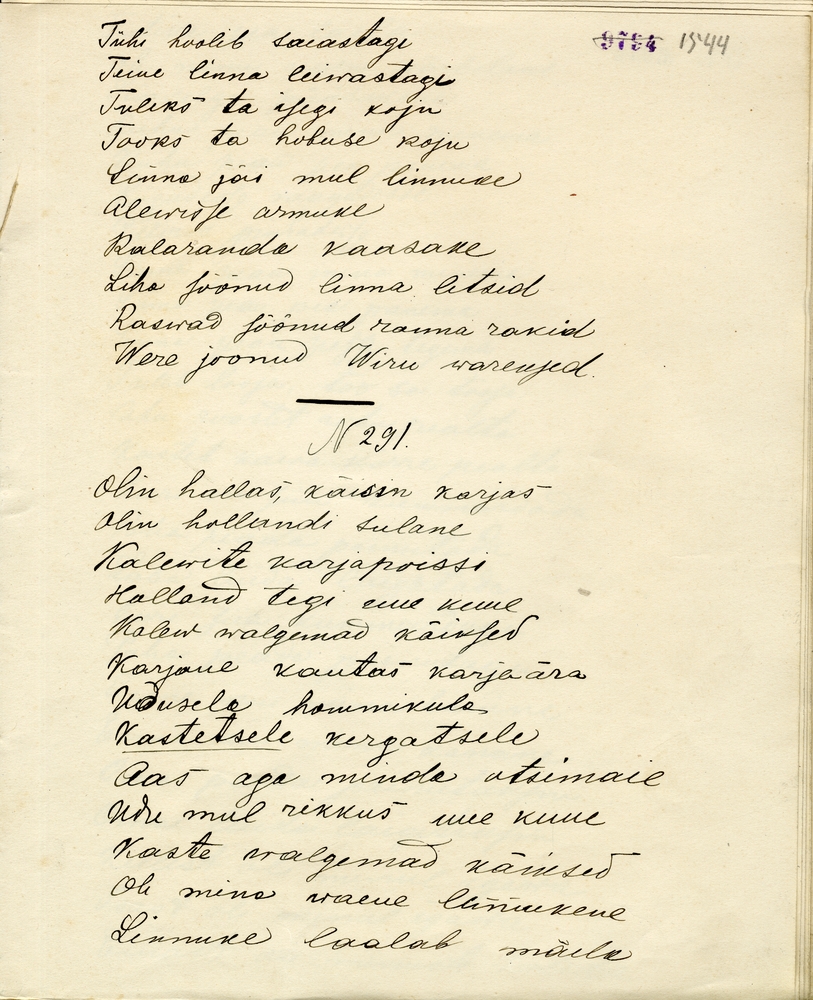 9754 1544
Tühi hoolib saiastagi
Teine linna leiwastagi
Tuleks ta isegi koju
Tooks ta hobuse koju
Linna jäi mul linnuke
Alewisse armuke
Kalaranda kaasake
Liha söönud linna litsid
Raswad söönud ranna rakid
Were joonud Wiru waresed.
N 291.
Olin hallas, käisin karjas
Olin hollandi sulane
Kalewite karjapoissi
Holland tegi uue kuue
Kalew walgemad käiksed
Karjane kautas karja ära
Udusela hommikula
Kastetsele kergatsele
Aas aga minda otsimaie
Udu mul rikkus uue kuue
Kaste walgemad käiksed
Oh mina waene linnukene
Linnuke laalab mäele